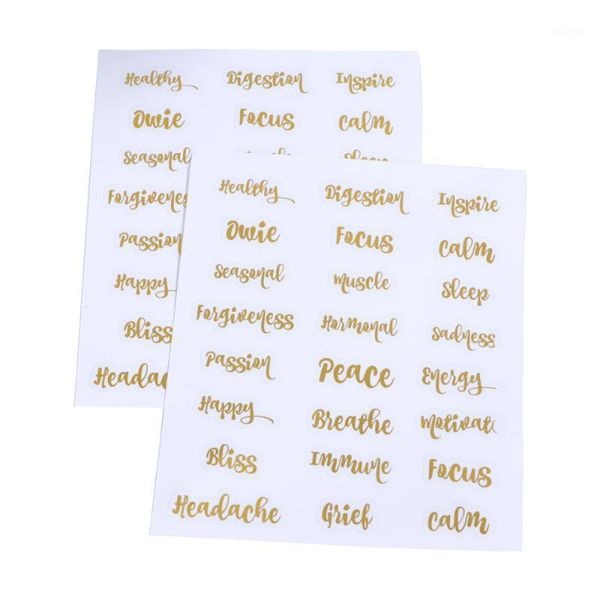 Healthy Digestion Inspire
Owie Focus calm
Seasonal Sleep
Forgiveness
Passion
Happy
Bliss
Headach
Healthy Digestion Inspire
Owie Focus calm
Seasonal Muscle Sleep
Forgiveness Hormonal Sadness
Passion Peace Energy
Happy Breathe Motivate
Bliss Immune Focus
Headache Grief calm